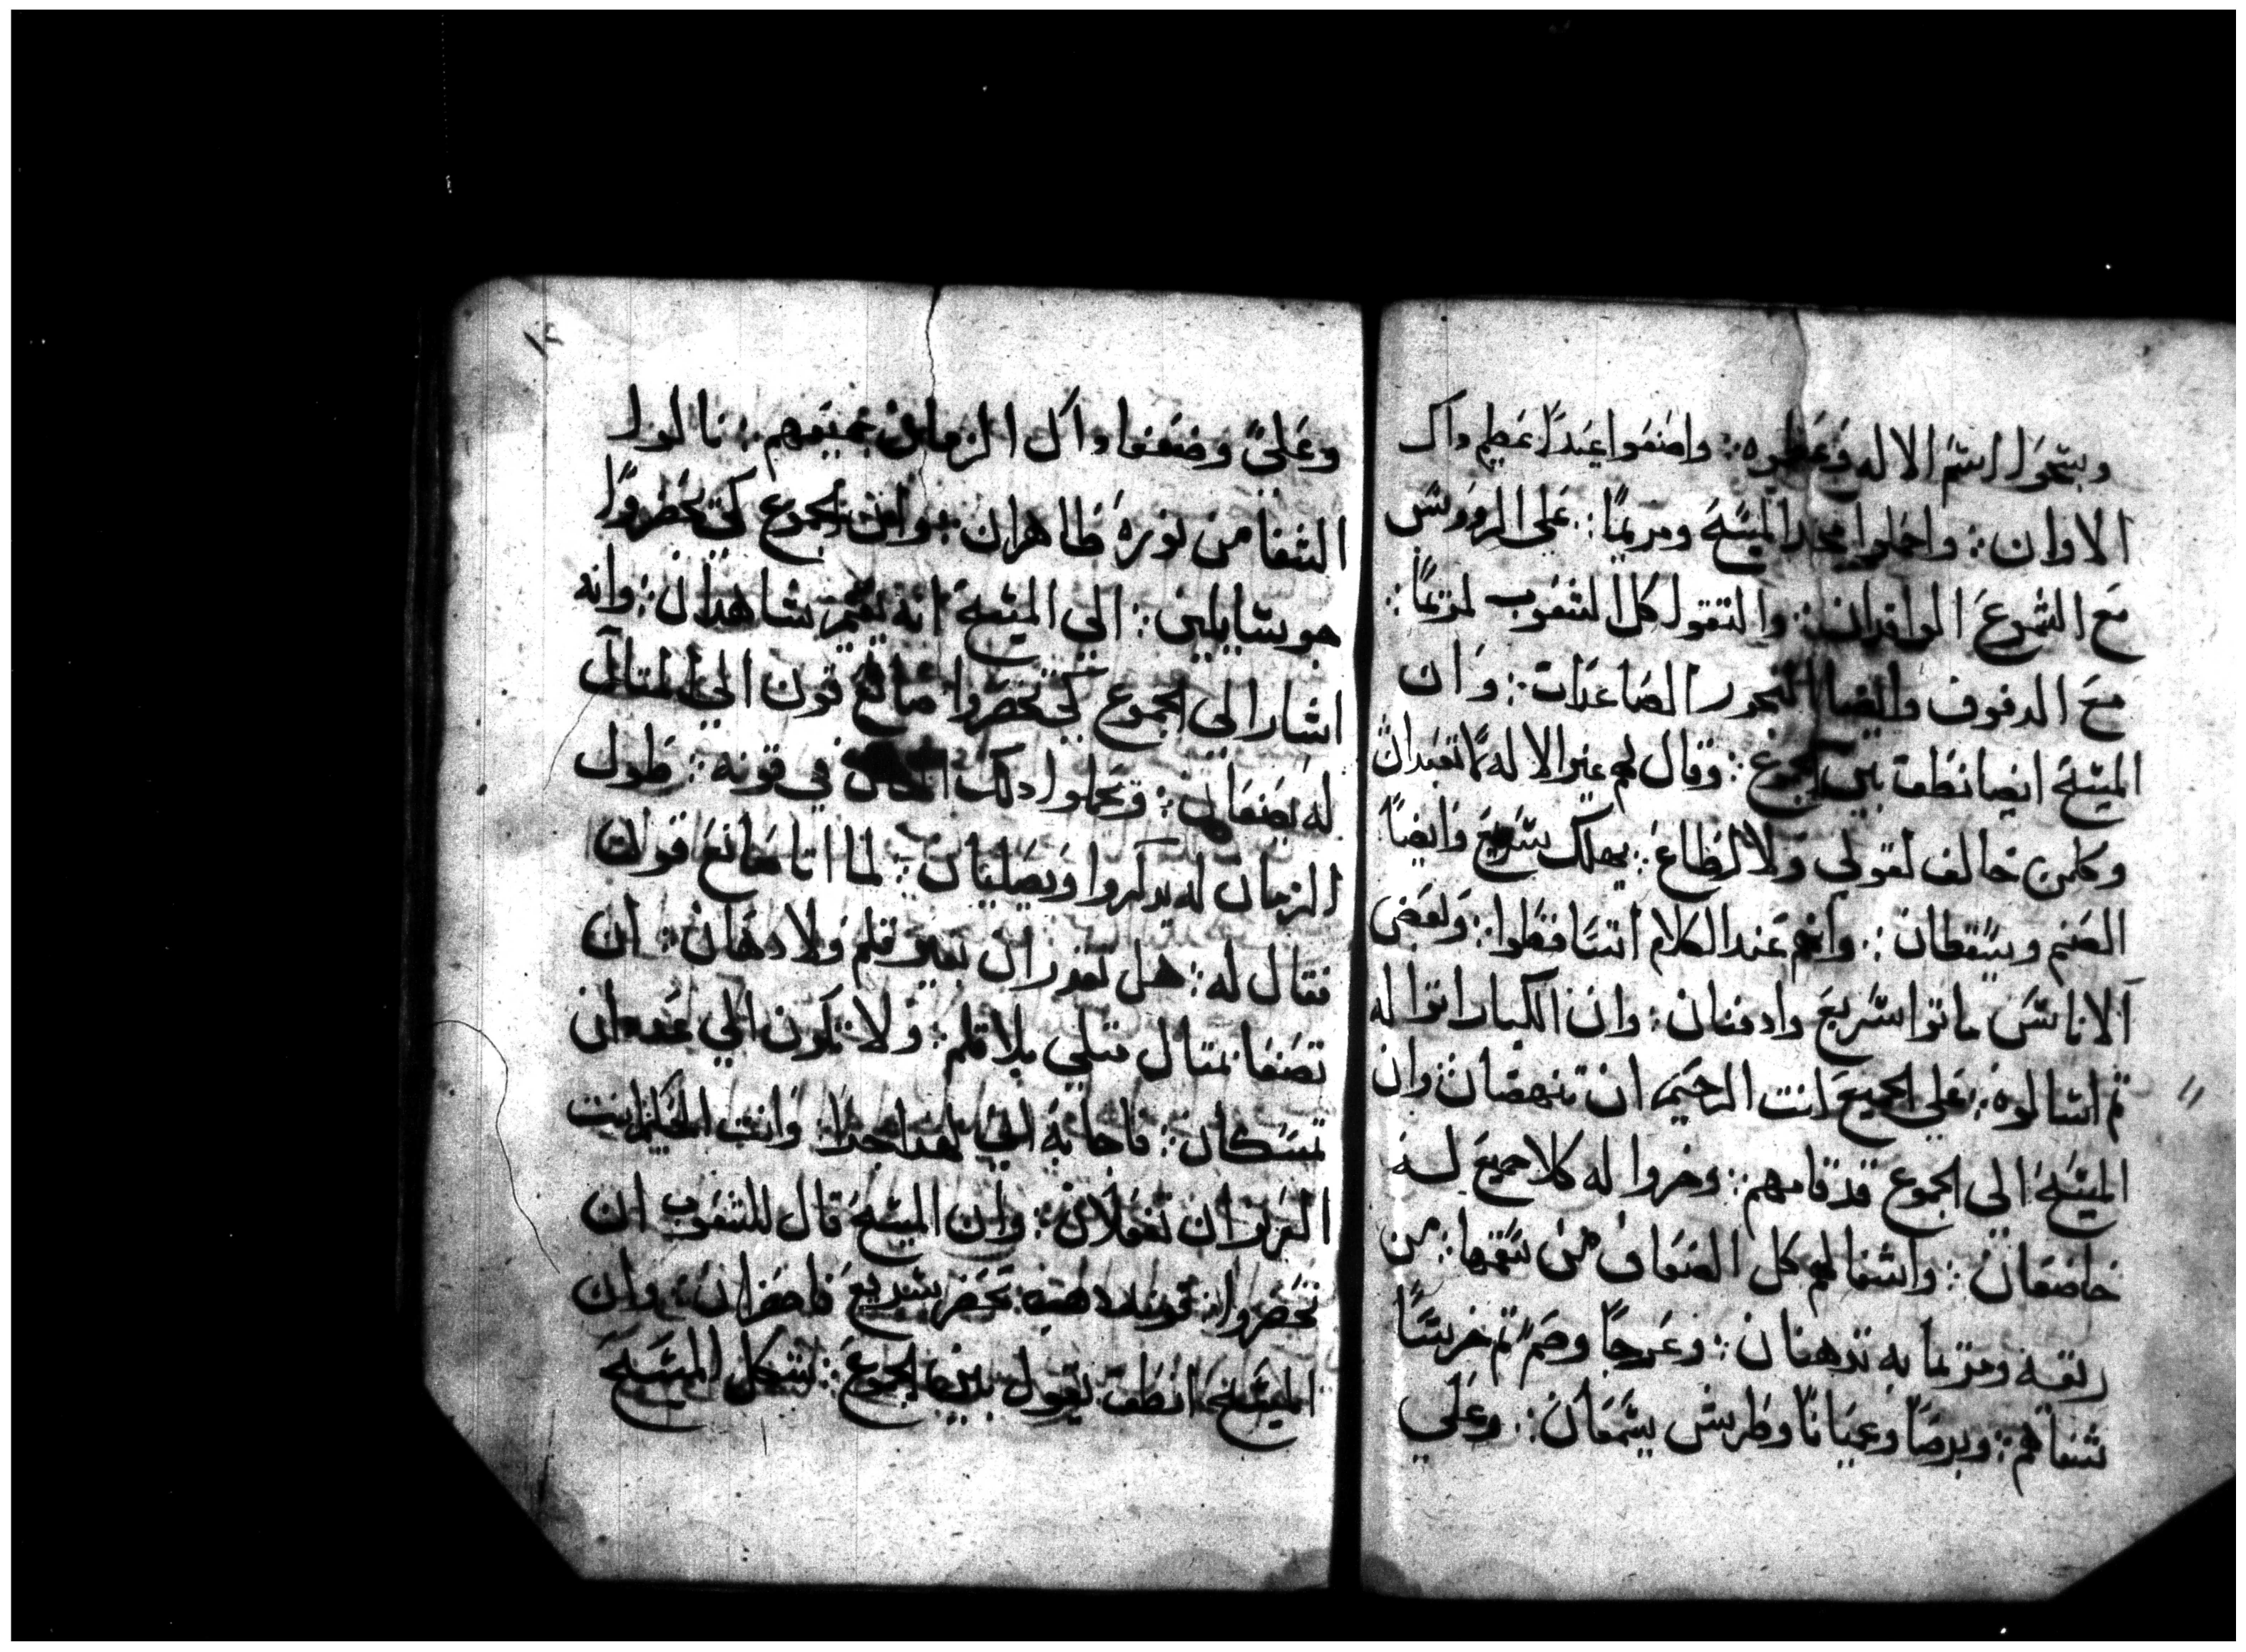 وبيتحول اسم الاله وعظوه :. واصنعوا عيدًا عظيم داك
الاوان :. واحملوا المسيح ومريمًا :. على الرووس
مع الشموع الواقدان :. والتقول كل الشعوب لمزيمًا :
مع الدفوف وايضا البخور الصاعدات :. وان
المسيح ايضا نطق بين الجموع :. وقال لهم غير الاله لا تعبدان
وكلمن خالف لقولي ولا لطاع :. يهلك سريع وايضًا
الصنم ويسقطان :. وانهم عند الكلام اتساقطوا :. وبعض
الاناس ماتوا سريع وادفنان :. وان الكبار اتوا له
تم اسالوه :. على الجميع انت الرحيم ان تنهضان وان
المسيح الي الجموع قد قامهم :. وخروا له كلا جميع له
خاضعان :. واشفا لهم كل الضعاف من سقمها :. من
ريقه ومزيما به تدهنان :. وعرجًا وصم تم خريسًا
شفاهم :. وبرصًا وعميانًا وطرش يسمعان :. وعلي
١٢
وعلىً وضعفا داك الزمان جميعهم :. نالوا
الشفا من نوره ظاهران :. وان الجموع كي يحضروا
جوسايلين :. الي المسيح انه يقيم شاهدان :. وانه
اشار الي الجموع كي تحضروا صانع قون الي المتال
له يصنعان :. وتجملوا دلك المكان في قونه :. طول
الزمان له يدكروا ويصليان :. لما اتا صانع قونان
فقال له :. هل تقدران بغير قلم ولا دهان :. ان
تصنعا متال متلي بلا قلم :. ولا تكون الي عده ان
تمسكان :. فاجابه الي لهدا جدا :. وانت الحكيم انت
القران تفعلان :. وان المسيح قال للشعوب ان
تحضروا تحضر سريع فاحضران :. وان
المسيح انطق يقول بين الجموع :. لشكل المسيح